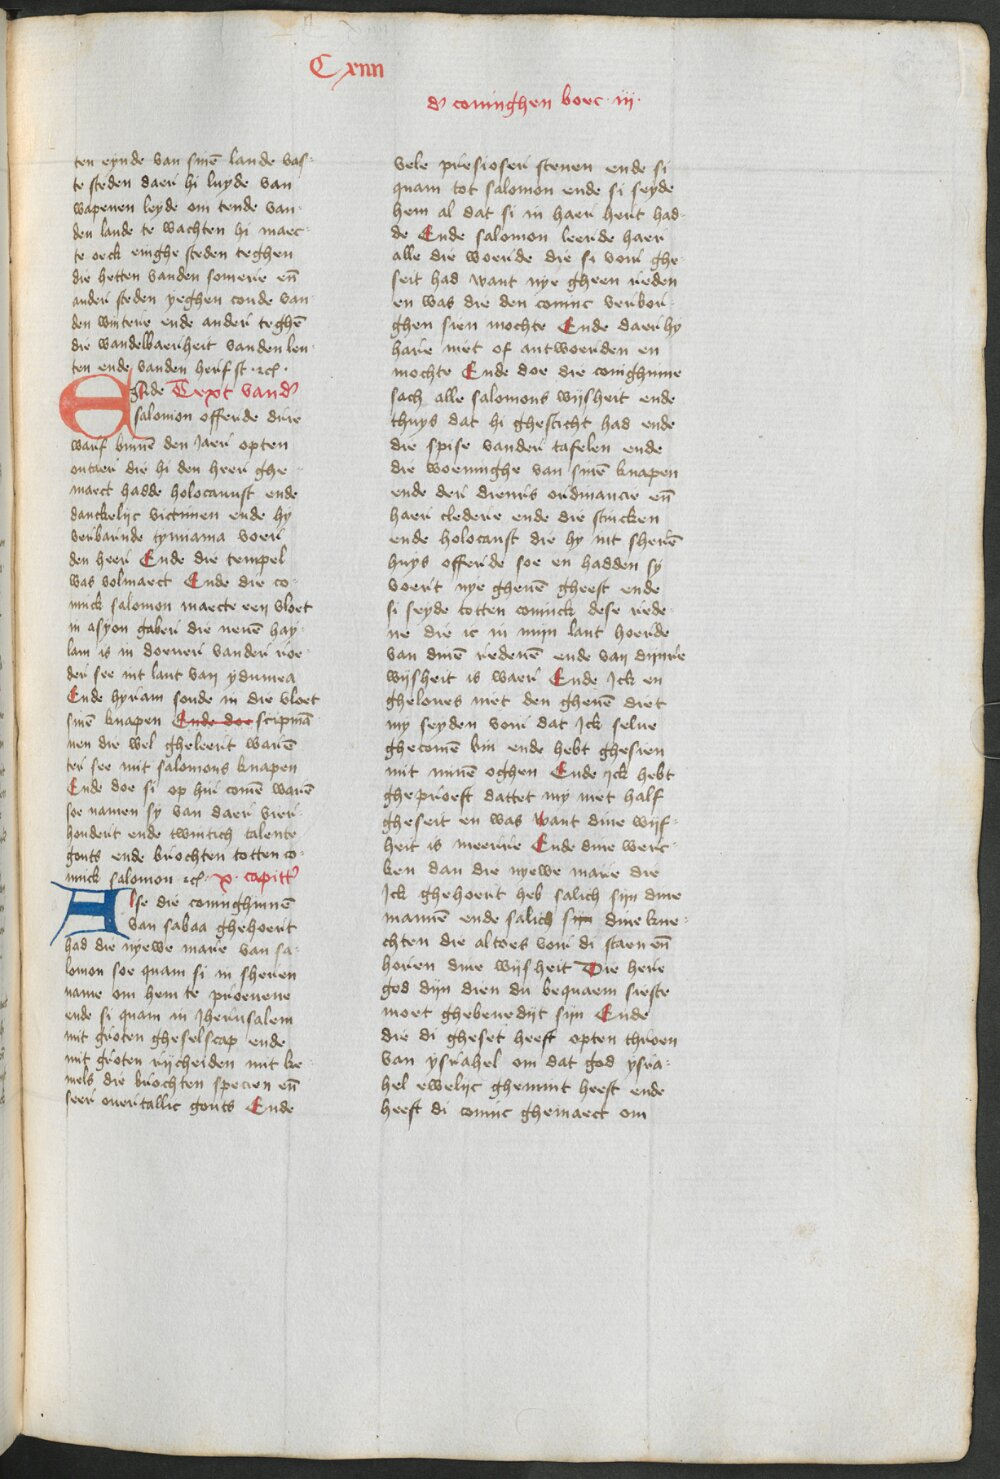 C xiiii
d' coninghen boec · iij ·
ten eynde van sinē lande vas-
te steden daer hi luyde van
wapenen leyde om tende van
den lande te wachten hi maec-
te oeck einghe steden teghen
die hetten vanden somere en̄
ander steden yeghen coude van
den wintere ende ander teghē
die wandelbaerheit vanden len-
ten ende vanden herfst · ⁊cꝭ ·
Ende Text vand'
salomon offerde drie
warf binnē den Jaer opten
outaer die hi den heer ghe-
maect hadde holocaust ende
danckelijc victimen ende hy
verbarnde tymiama voer
den heer Ende die tempel
was volmaect Ende die co-
ninck salomon maecte een vloet
in asyon gaber die neuē hay-
lam is in doever vander roe-
der see int lant van ydumea
Ende hyram sonde in die vloet
sinē knapen Ende doe scipmā
nen die wel gheleert warē
ter see mit salomons knapen
Ende doe si op hur comē warē
soe namen sy van daer vier-
hondert ende twintich talente
gouts ende brochten totten co-
ninck salomon ⁊cꝭ · x · capitt'
Alse die coninghinnē
van sabaa ghehoert
had die nyewe mare van sa-
lomon soe quam si in sheren
name om hem te proevene
ende si quam in Jherusalem
mit groten gheselscap ende
mit groten rijcheiden mit ke-
mels die brochten specien en̄
seer overtallic gouts Ende
vele presioser stenen ende si
quam tot salomon ende si seyde
hem al dat si in haer hert had-
de Ende salomon leerde haer
alle die woerde die si voir ghe-
seit had want nye gheen reden
en was die den coninc verbor-
ghen sien mochte Ende daer hy
hare niet of antwoerden en
mochte Ende doe die conighinne
sach alle salomons wijsheit ende
thuys dat hi ghesticht had ende
die spise vander tafelen ende
die woeninghe van sinē knapen
ende der dienris ordinancie en̄
haer cledere ende die scincken
ende holocaust die hy int sherē
huys offerde soe en hadden sy
voert nye ghenē gheest ende
si seyde totten coninck dese rede-
ne die ic in mijn lant hoerde
van dinē redenē ende van dijnre
wijsheit is waer Ende Ick en
gheloves niet den ghenē diet
my seyden voir dat Ick selve
ghecomē bin ende hebt ghesien
mit minē oghen Ende Ick hebt
gheproeft dattet my niet half
gheseit en was want dine wijs-
heit is meerre Ende dine werc-
ken dan die nyewe mare die
Ick ghehoert heb salich sijn dine
mannē ende salich sijn dine kne-
chten die altoes voir di staen en̄
horen dine wijsheit Die here
god dijn dien du bequaem sieste
moet ghebenedijt sijn Ende
die di gheset heeft opten throen
van ysrahel om dat god ysra-
hel ewelijc ghemint heeft ende
heeft di coninc ghemaect om